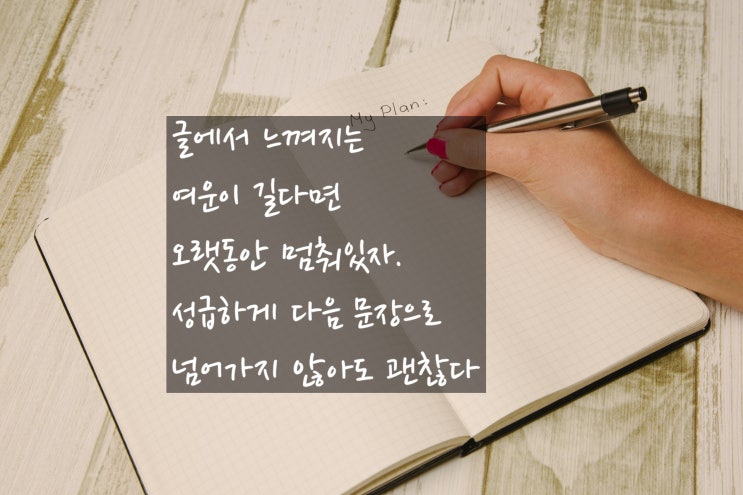 My Plan:
글에서 느껴지는
여운이 길다면
오랫동안 멈춰있자.
성급하게 다음 문장으로
넘어가지 않아도 괜찮다